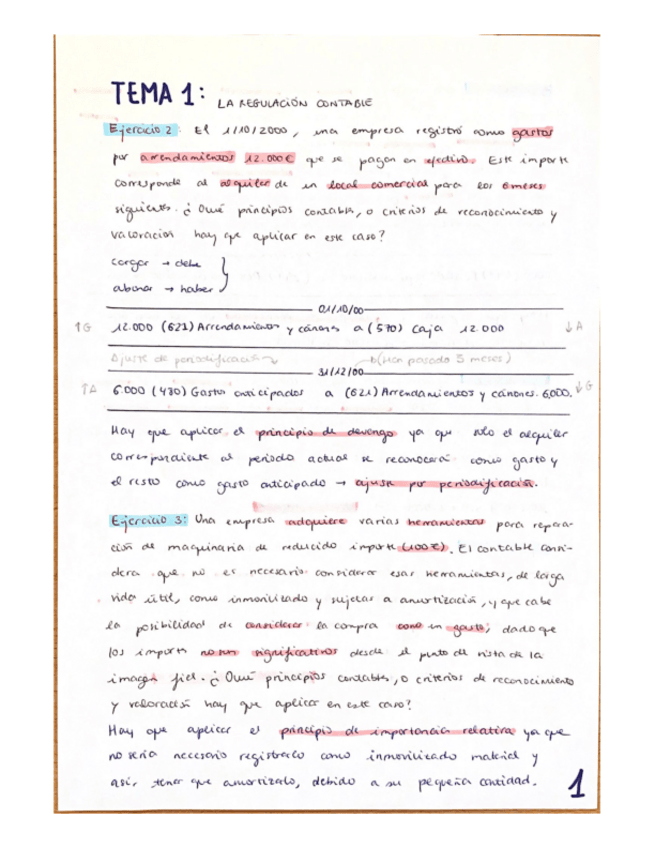 TEMA 1: LA REGULACIÓN CONTABLE
Ejercicio 2: El 1/10/2000, una empresa registró como gastos
por arrendamientos 12.000€ que se pagan en efectivo. Este importe
corresponde al alquiler de un local comercial para los 6 meses
siguientes. ¿Qué principios contables, o criterios de reconocimiento y
valoración hay que aplicar en este caso?
cargar → debe
abonar → haber
01/10/00
↑G 12.000 (621) Arrendamientos y cánones a (570) Caja 12.000 ↓A
Ajuste de periodificación (Han pasado 3 meses)
31/12/00
↑A 6.000 (480) Gastos anticipados a (621) Arrendamientos y cánones. 6.000. ↓G
Hay que aplicar el principio de devengo ya que solo el alquiler
correspondiente al periodo actual se reconocerá como gasto y
el resto como gasto anticipado → ajuste por periodificación.
Ejercicio 3: Una empresa adquiere varias herramientas para repara-
ción de maquinaria de reducido importe (100€). El contable consi-
dera que no es necesario considerar esas herramientas, de larga
vida útil, como inmovilizado y sujetas a amortización, y que cabe
la posibilidad de considerar la compra como un gasto, dado que
los importes no son significativos desde el punto de vista de la
imagen fiel. ¿Qué principios contables, o criterios de reconocimiento
y valoración hay que aplicar en este caso?
Hay que aplicar el principio de importancia relativa ya que
no sería necesario registrarlo como inmovilizado material y
así, tener que amortizarlo, debido a su pequeña cantidad.
1